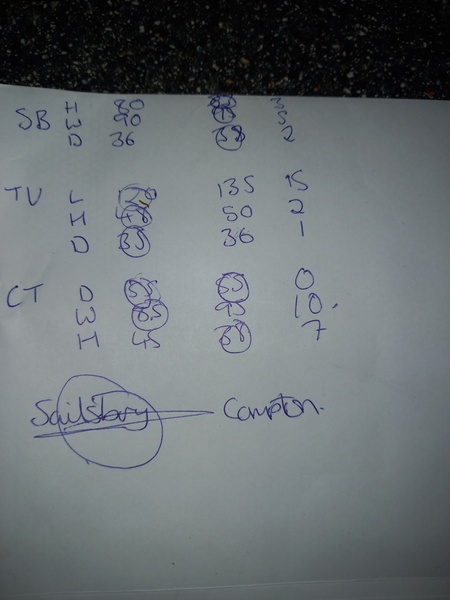 H 80 3
SB W 90 5
D 36 38 2
TV L 135 15
H 48 50 2
D 35 36 1
CT D 55 55 0
W 85 95 10.
H 45 38 7
Sailsbury — Compton.